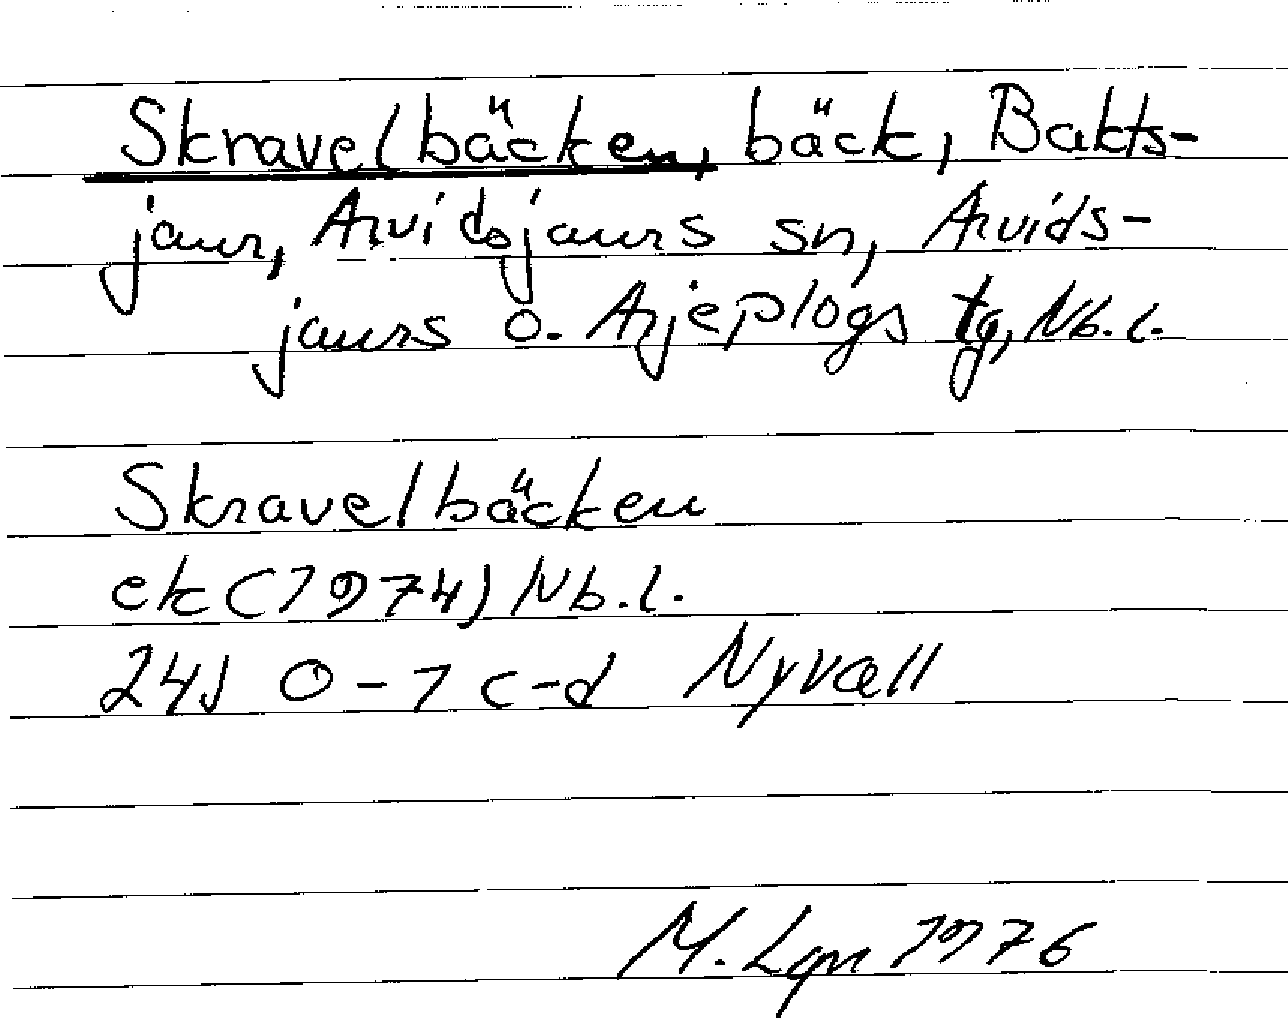 Skravelbäcken, bäck, Bakts-
jaur, Arvidsjaurs sn, Arvids-
jaurs o. Arjeplogs tg, Nb.l.
Skravelbäcken
ek (1974) Nb.l.
24J 0-1 c-d Nyvall
M. Lgn 1976